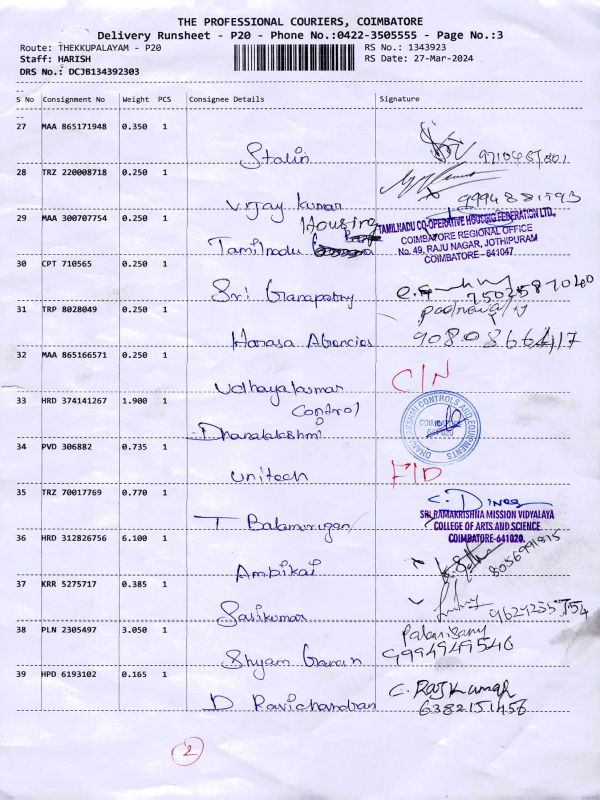 THE PROFESSIONAL COURIERS, COIMBATORE
Delivery Runsheet - P20 - Phone No.:0422-3505555 - Page No.:3
Route: THEKKUPALAYAM - P20 RS No.: 1343923
Staff: HARISH RS Date: 27-Mar-2024
DRS No.: DCJB134392303
S No Consignment No Weight PCS Consignee Details Signature
27 MAA 865171948 0.350 1
Stalin
28 TRZ 220008718 0.250 1
Vijay kumar 9994881593
29 MAA 300707754 0.250 1
Housing
Tamilnadu
TAMILNADU CO-OPERATIVE HOUSING FEDERATION LTD.,
COIMBATORE REGIONAL OFFICE
No. 49, RAJU NAGAR, JOTHIPURAM
COIMBATORE - 641047
30 CPT 710565 0.250 1
Sri Ganapathy
31 TRP 8028049 0.250 1
Harasa Agencies
32 MAA 865166571 0.250 1
Udhayakumar C/N
33 HRD 374141267 1.900 1
Control
Dhanalakshmi
DHANALAKSHMI CONTROLS AND EQUIPMENTS
34 PVD 306882 0.735 1
Unitech
35 TRZ 70017769 0.770 1
T Balamurigan
C. Dines
SRI RAMAKRISHNA MISSION VIDYALAYA
COLLEGE OF ARTS AND SCIENCE
COIMBATORE-641020.
36 HRD 312826756 6.100 1
Ambikai
37 KRR 5275717 0.385 1
Sasikumar
38 PLN 2305497 3.050 1
Palanisamy
Shyam 9994949546
39 HPD 6193102 0.165 1
D Ravichandran C. Raj Kumar
6382151456
2